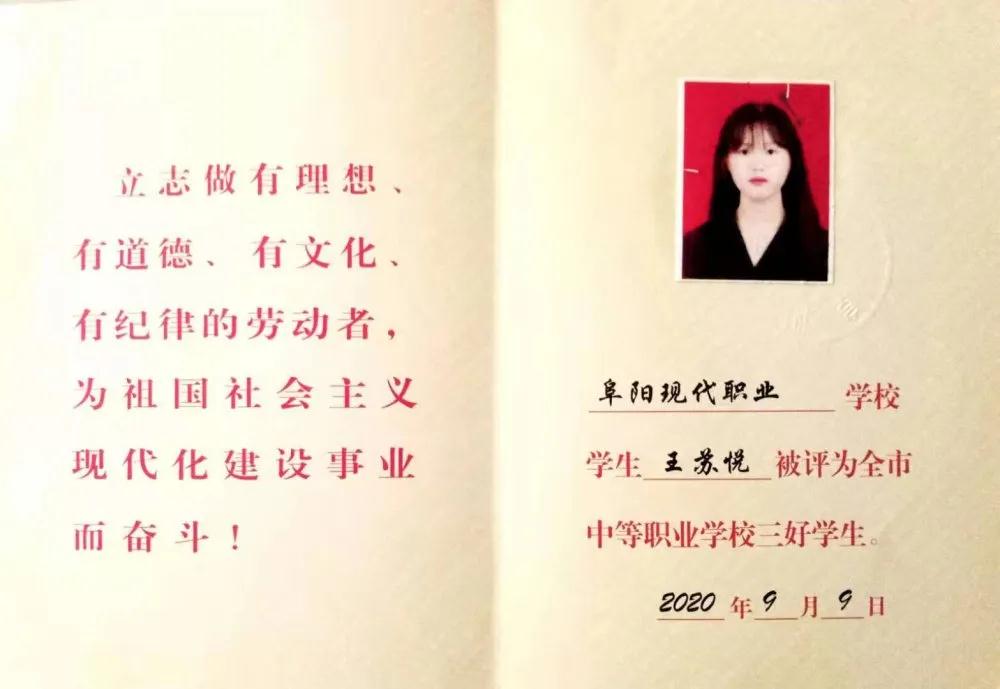 立志做有理想、
有道德、有文化、
有纪律的劳动者，
为祖国社会主义
现代化建设事业
而奋斗！
阜阳现代职业学校
学生王苏悦被评为全市
中等职业学校三好学生。
2020年9月9日